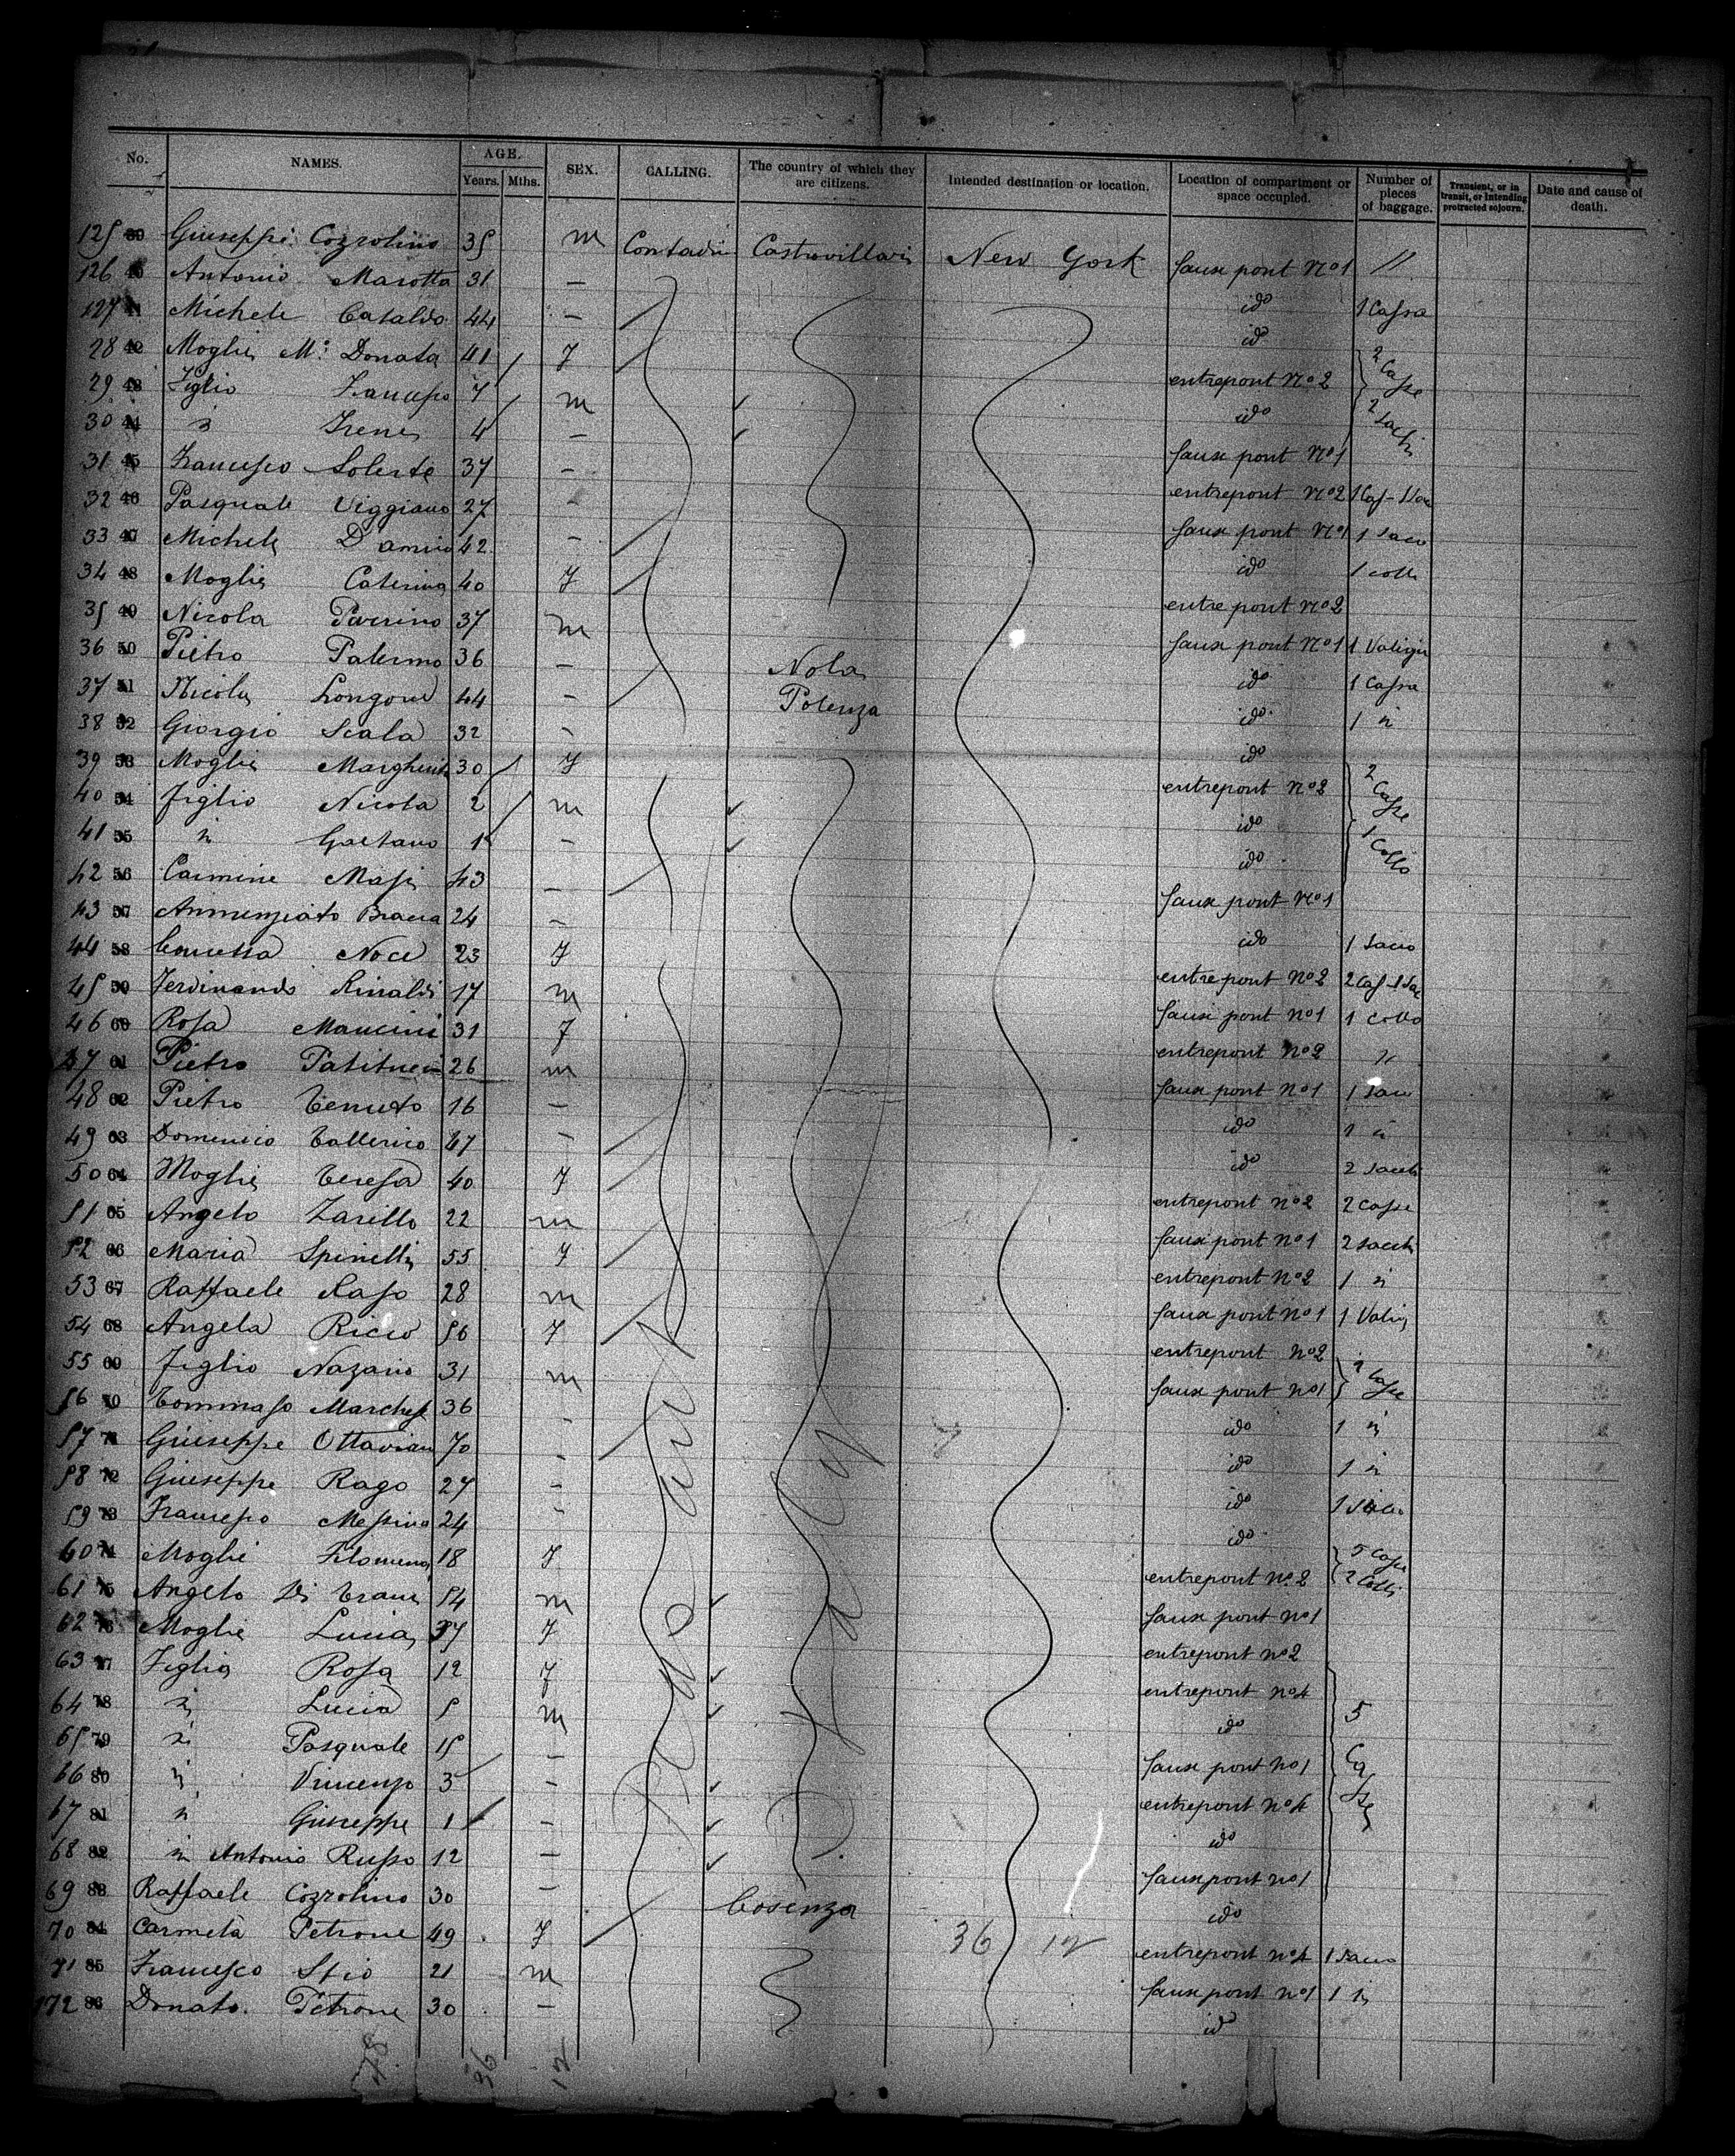 No. NAMES. AGE. Years. Mths. SEX. CALLING. The country of which they are citizens. Intended destination or location. Location of compartment or space occupied. Number of pieces of baggage. Transient, or in transit, or intending protracted sojourn. Date and cause of death.
125 39 Giuseppi Cozzolino 35 m Contadini Castrovillari New York faux pont No 1 //
126 40 Antonio Marotta 31 — ido 1 Cassa
127 41 Michele Cataldo 44 — ido
28 42 Moglie Ma Donata 41 f entrepont No 2 2 Casse
29 43 Figlio Francesco 7 m ido 2 Sacchi
30 44 Irene 4 — faux pont No 1
31 45 Francesco 37 — entrepont No 2
32 46 Pasquale Viggiano 27 — faux pont No 1 1 Sacco
33 47 Michele D'amico 42 — ido 1 colli
34 48 Moglie Caterina 40 f entre pont No 2
35 49 Nicola Parrino 37 m faux pont No 1 1 Valigia
36 50 Pietro Palermo 36 — Nola ido 1 Cassa
37 51 Nicola Longone 44 — Potenza ido 1
38 52 Giorgio Scala 32 — ido
39 53 Moglie Margherita 30 f entrepont No 2 2 Casse
40 54 Figlio Nicola 2 m ido 1 Collo
41 55 Gaetano 1 — ido
42 56 Carmine Masi 43 — faux pont No 1
43 57 Annunziato 24 — ido 1 Sacco
44 58 Concetta Noce 23 f entrepont No 2
45 59 Ferdinando Rinaldi 17 m faux pont No 1 1 Collo
46 60 Rosa Mancini 31 f entrepont No 2
47 61 Pietro Patitucci 26 m faux pont No 1 1 Sacco
48 62 Pietro Tenuto 16 — ido 1
49 63 Domenico Tallerico 47 — ido 2 Sacchi
50 64 Moglie Teresa 40 f entrepont No 2 2 Casse
51 65 Angelo Zarillo 22 m faux pont No 1 2 Sacchi
52 66 Maria Spinelli 55 f entrepont No 2 1
53 67 Raffaele Raso 28 m faux pont No 1 1
54 68 Angela Ricci 56 f entrepont No 2
55 69 Figlio Nazario 31 m faux pont No 1 2 Casse
56 70 Tommaso Marchese 36 — ido 1
57 71 Giuseppe Ottaviani 70 — ido 1
58 72 Giuseppe Rago 27 — ido 1 Sacco
59 73 Francesco Messina 24 — ido
60 74 Moglie Filomena 18 f entrepont No 2 2 Colli
61 75 Angelo Di Trani 54 m faux pont No 1
62 76 Moglie Lucia f entrepont No 2
63 77 Figlia Rosa 12 f entrepont No 4
64 78 Lucia 5 m ido 5 Casse
65 79 Pasquale 15 — faux pont No 1
66 80 Vincenzo 3 — entrepont No 4
67 81 Giuseppe 1 — ido
68 82 Antonio Russo 12 — faux pont No 1
69 83 Raffaele Cozzolino 30 — Cosenza ido
70 84 Carmela Petrone 49 f 36 12 entrepont No 4 1 Sacco
71 85 Francesco 21 m faux pont No 1 1
172 86 Donato Petrone 30 — ido
48 36 12